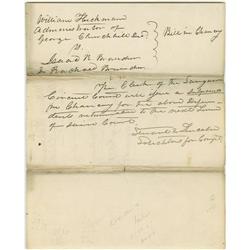 William Hickman
Administrator of
George Churchill Decd
v.
Isaac R.
& Rachael
Bill in Chancy
The Clerk of the Sangamon
Circuit Court will issue a subpoena
in Chancery for the above Defen-
dents returnable to the next term
of said Court
Stuart & Lincoln
Solicitors for Compt